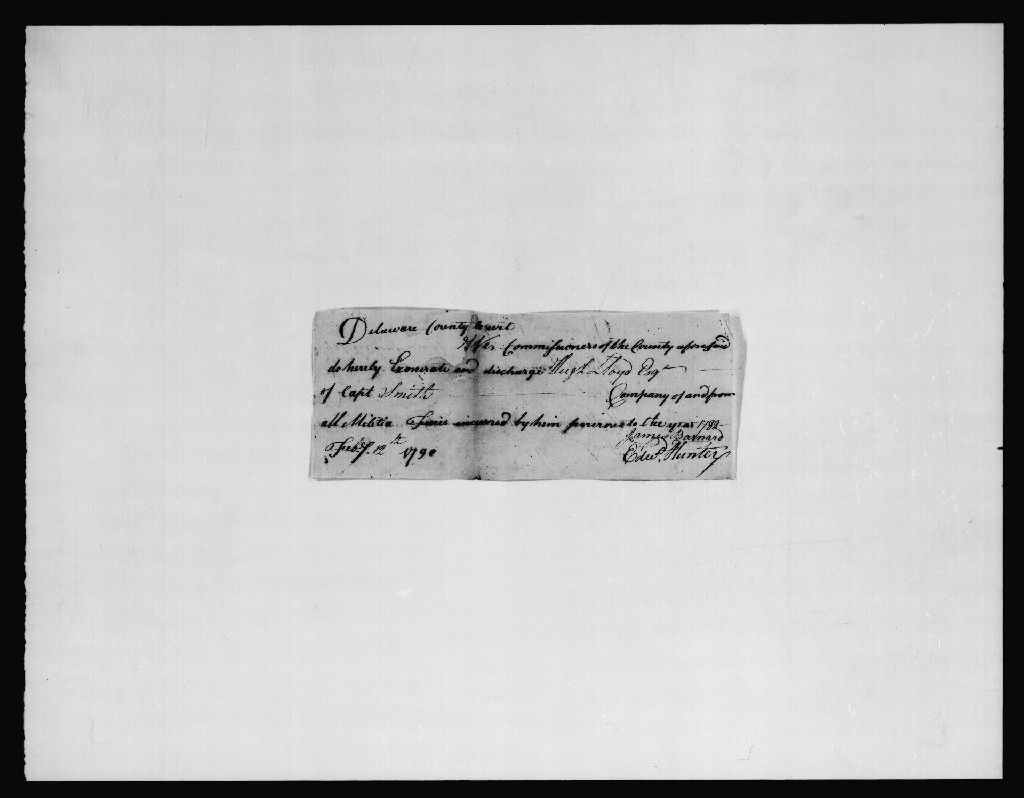 Delaware County to wit
We Commissioners of the County aforesaid
do hereby Exonerate and discharge Hugh Lloyd Esqr
of Capt Smith Company of and from
all Militia Fines incurred by him previous to the year
James Barnard
Feby. 12th 1790 Edwd. Hunter